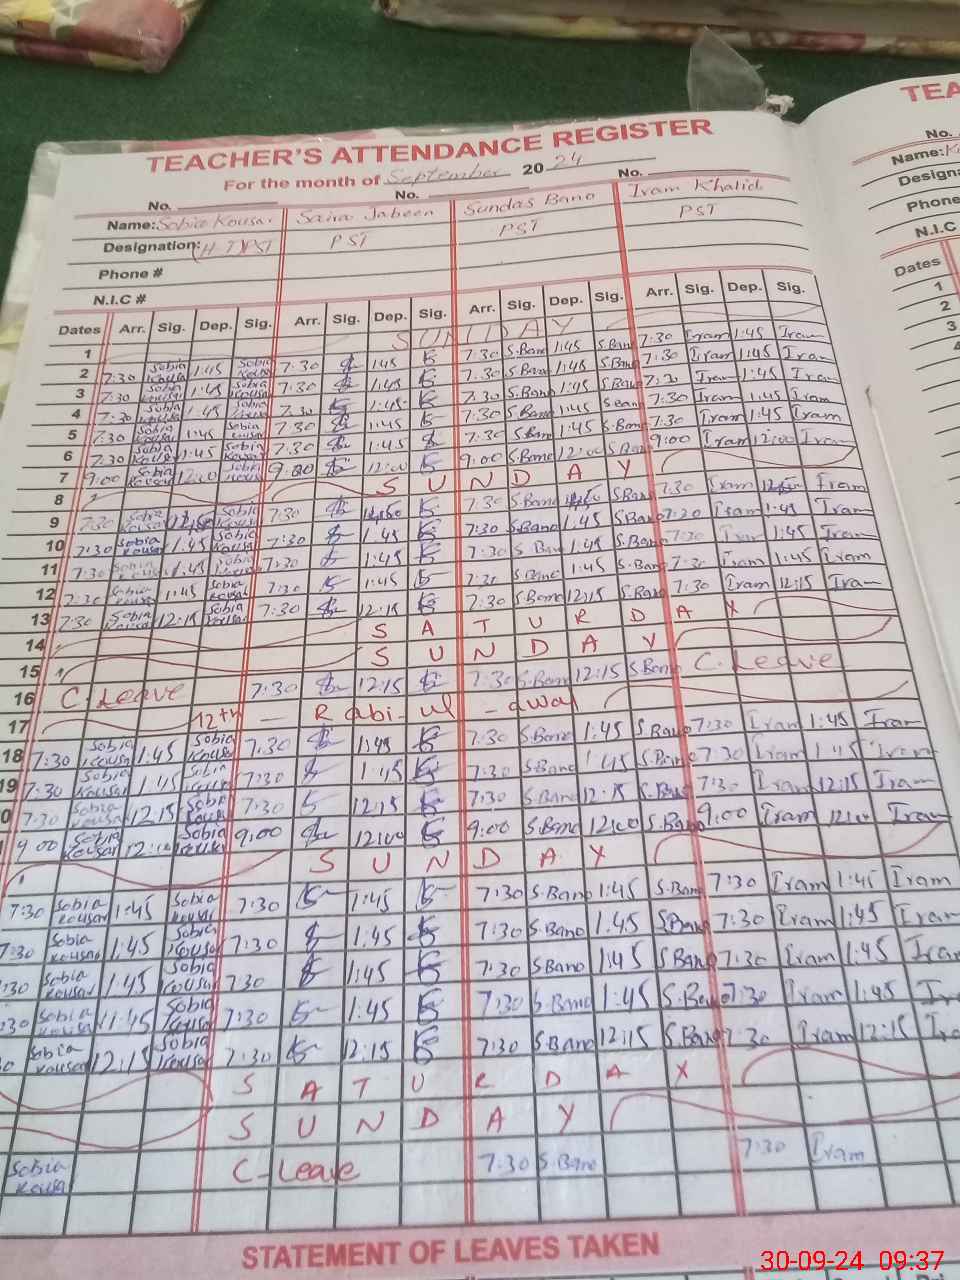 TEACHER'S ATTENDANCE REGISTER
For the month of September 20 24
No. No. No.
Name: Sobia Kousar Saira Jabeen Sundas Bano Iram Khalid
Designation: (H-T)PST PST PST PST
Phone #
N.I.C #
Dates Arr. Sig. Dep. Sig. Arr. Sig. Dep. Sig. Arr. Sig. Dep. Sig. Arr. Sig. Dep. Sig.
1 SUNDAY
2 7:30 Sobia Kousar 1:45 Sobia Kousar 7:30 1:45 7:30 S.Bano 1:45 S.Bano 7:30 Iram 1:45 Iram
3 7:30 Sobia Kousar 1:45 Sobia Kousar 7:30 1:45 7:30 S.Bano 1:45 S.Bano 7:30 Iram 1:45 Iram
4 7:30 Sobia Kousar 1:45 Sobia Kousar 7:30 1:45 7:30 S.Bano 1:45 S.Bano Iram 1:45 Iram
5 7:30 Sobia Kousar 1:45 Sobia Kousar 7:30 1:45 7:30 S.Bano 1:45 7:30 Iram 1:45 Iram
6 7:30 Sobia Kousar 1:45 Sobia Kousar 7:30 1:45 7:30 S.Bano 1:45 S.Bano 7:30 Iram 1:45 Iram
7 9:00 Sobia Kousar 12:00 Sobia Kousar 9:00 12:00 9:00 S.Bano 12:00 S.Bano 9:00 Iram 12:00 Iram
8 SUNDAY
9 7:30 Sobia Kousar Sobia Kousar 7:30 7:30 S.Bano S.Bano 7:30 Iram Iram
10 7:30 Sobia Kousar 1:45 Sobia Kousar 7:30 1:45 7:30 S.Bano 1:45 S.Bano 7:30 Iram 1:45 Iram
11 7:30 Sobia Kousar 1:45 Sobia Kousar 7:30 1:45 7:30 S.Bano 1:45 S.Bano 7:30 Iram 1:45 Iram
12 7:30 Sobia Kousar 1:45 Sobia Kousar 7:30 1:45 7:30 S.Bano 1:45 S.Bano 7:30 Iram 1:45 Iram
13 7:30 Sobia Kousar 12:15 Sobia Kousar 7:30 12:15 7:30 S.Bano 12:15 S.Bano 7:30 Iram 12:15 Iram
14 SATURDAY
15 SUNDAY
16 C.Leave 7:30 12:15 7:30 S.Bano 12:15 S.Bano C.Leave
17 12th - Rabi-ul-awal
18 7:30 Sobia Kousar 1:45 Sobia Kousar 7:30 1:45 7:30 S.Bano 1:45 S.Bano 7:30 Iram 1:45 Iram
19 7:30 Sobia Kousar 1:45 Sobia Kousar 7:30 1:45 7:30 S.Bano 1:45 S.Bano 7:30 Iram 1:45 Iram
0 7:30 Sobia Kousar 12:15 Sobia Kousar 7:30 12:15 7:30 S.Bano 12:15 S.Bano 7:30 Iram 12:15 Iram
9:00 Sobia Kousar 12:00 Sobia Kousar 9:00 12:00 9:00 S.Bano 12:00 S.Bano 9:00 Iram 12:00 Iram
SUNDAY
7:30 Sobia Kousar 1:45 Sobia Kousar 7:30 1:45 7:30 S.Bano 1:45 S.Bano 7:30 Iram 1:45 Iram
7:30 Sobia Kousar 1:45 Sobia Kousar 7:30 1:45 7:30 S.Bano 1:45 S.Bano 7:30 Iram 1:45 Iram
:30 Sobia Kousar 1:45 Sobia Kousar 7:30 1:45 7:30 S.Bano 1:45 S.Bano 7:30 Iram 1:45 Iram
:30 Sobia Kousar 1:45 Sobia Kousar 7:30 1:45 7:30 S.Bano 1:45 S.Bano 7:30 Iram 1:45
Sobia Kousar 12:15 Sobia Kousar 7:30 12:15 7:30 S.Bano 12:15 S.Bano 7:30 Iram 12:15
SATURDAY
SUNDAY
Sobia Kousar C-Leave 7:30 S.Bano 7:30 Iram
STATEMENT OF LEAVES TAKEN
TEA
No.
Name: K
Designa
Phone
N.I.C
Dates
1
2
3
4
30-09-24 09:37